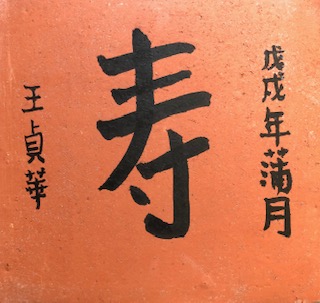 戊戌年蒲月
寿
王貞華